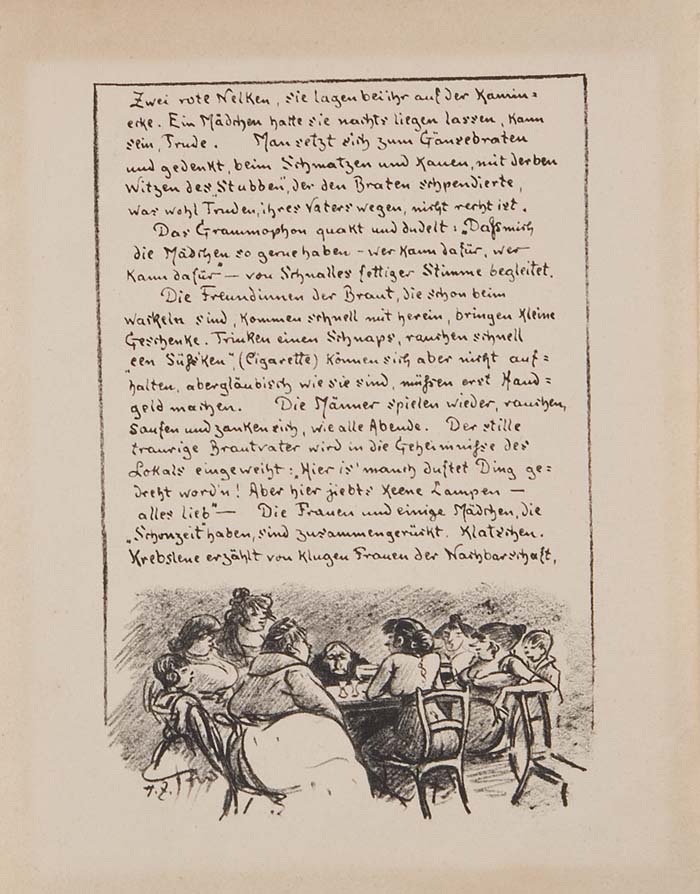 Zwei rote Nelken, sie lagen bei ihr auf der Kamin=
ecke. Ein Mädchen hatte sie nachts liegen lassen, kann
sein, Trude. Man setzt sich zum Gänsebraten
und gedenkt, beim Schmatzen und Kauen, mit derben
Witzen des „Stubben", der den Braten schpendierte,
was wohl Truden, ihres Vaters wegen, nicht recht ist.
Das Grammophon quakt und dudelt: „Dafs mich
die Mädchen so gerne haben - wer kann dafür, wer
kann dafür" — von Schnalles fettiger Stimme begleitet.
Die Freundinnen der Braut, die schon beim
wackeln sind, kommen schnell mit herein, bringen kleine
Geschenke. Trinken einen Schnaps, rauchen schnell
„een Süfsken", (Cigarette) können sich aber nicht auf=
halten, abergläubisch wie sie sind, müfsen erst Hand=
geld machen. Die Männer spielen wieder, rauchen,
saufen und zanken sich, wie alle Abende. Der stille
traurige Brautvater wird in die Geheimnifse des
Lokals eingeweiht: „Hier is' manch duftet Ding ge=
dreht word'n! Aber hier jiebts keene Lampen —
alles lieb" — Die Frauen und einige Mädchen, die
„Schonzeit" haben, sind zusammengerückt. Klatschen.
Krebslene erzählt von klugen Frauen der Nachbarschaft,
H.Z.